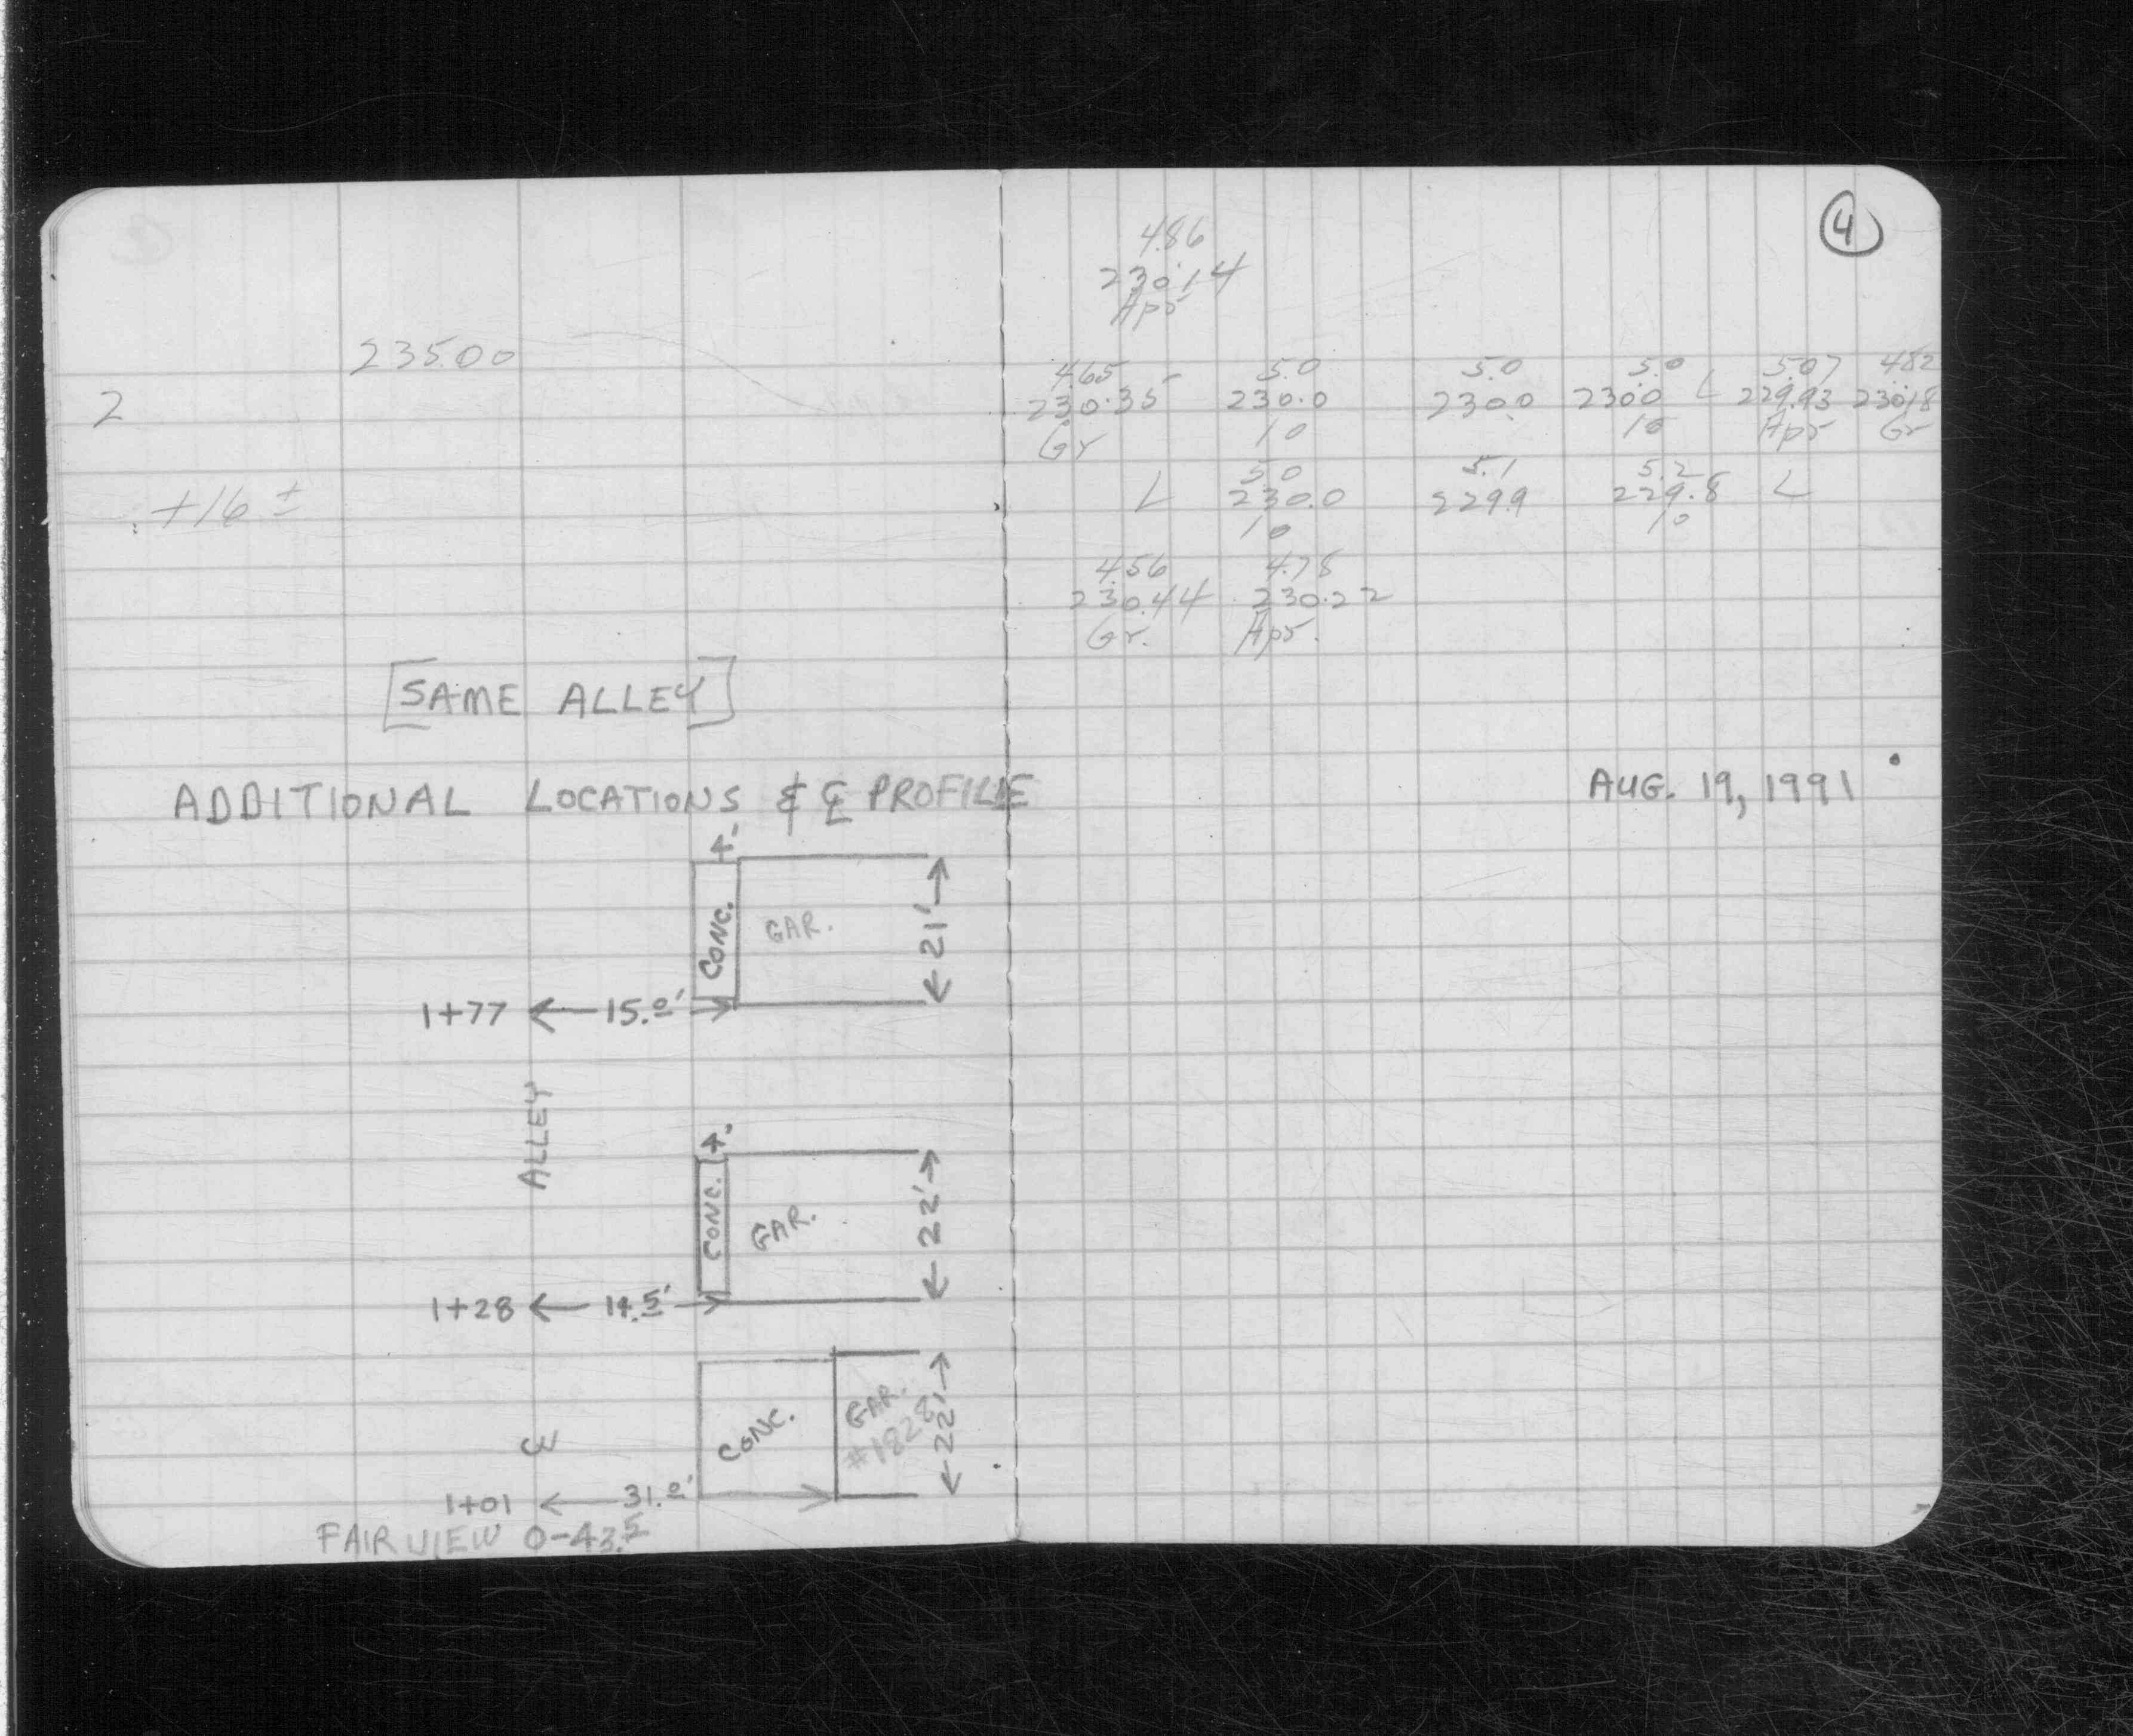 4
4.86
230.14
Apr
235.00
4.65 5.0 5.0 5.0 5.07 4.82
2 230.35 230.0 230.0 230.0 L 229.93 230.18
Gr 10 10 Apr Gr
5.0 5.1 5.2
+16 ± L 230.0 229.9 229.8 L
10 10
4.56 4.78
230.44 230.22
Gr. Apr.
[SAME ALLEY]
ADDITIONAL LOCATIONS & ℄ PROFILE AUG. 19, 1991
4'
CONC. GAR. 21'
1+77 15.0'
ALLEY
4'
CONC. GAR. 22'
1+28 14.5'
CONC. GAR. #1828 22'
1+01 31.0'
FAIRVIEW 0-43.5